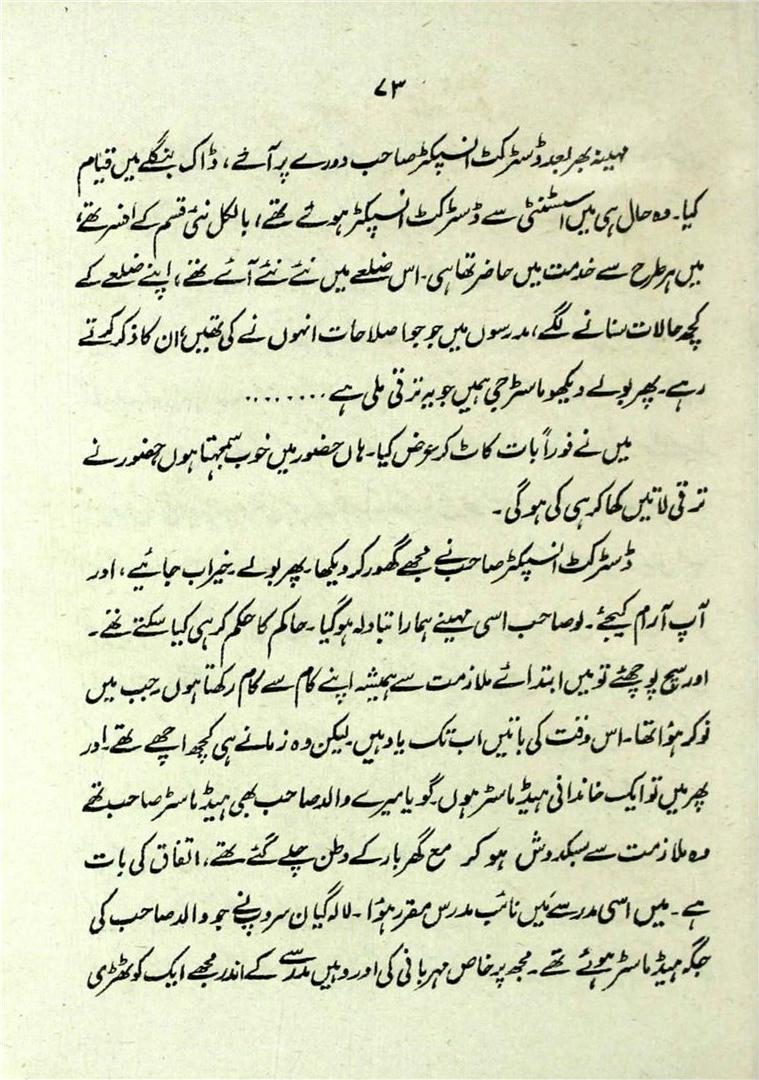 ۷۳
مہینہ بھر بعد ڈسٹرکٹ انسپکٹر صاحب دورے پر آئے، ڈاک بنگلے میں قیام
کیا۔ وہ حال ہی میں اسسٹنٹی سے ڈسٹرکٹ انسپکٹر ہوئے تھے، بالکل نئی قسم کے افسر تھے،
میں ہر طرح سے خدمت میں حاضر تھا ہی۔ اس ضلعے میں نئے نئے آئے تھے، اپنے ضلعے کے
کچھ حالات سنانے لگے، مدرسوں میں جو جو اصلاحات انہوں نے کی تھیں، ان کا ذکر کرتے
رہے۔ پھر بولے دیکھو ماسٹر جی ہمیں جو یہ ترقی ملی ہے ........
میں نے فوراً بات کاٹ کر عرض کیا۔ ہاں حضور میں خوب سمجھتا ہوں حضور نے
ترقی لاتیں کھا کر ہی کی ہو گی۔
ڈسٹرکٹ انسپکٹر صاحب نے مجھے گھور کر دیکھا۔ پھر بولے۔ خیر اب جائیے، اور
آپ آرام کیجئے۔ لو صاحب اسی مہینے ہمارا تبادلہ ہو گیا۔ حاکم کا حکم کر ہی کیا سکتے تھے۔
اور سچ پوچھئے تو میں ابتدائے ملازمت سے ہمیشہ اپنے کام سے کام رکھتا ہوں۔ جب میں
نوکر ہؤا تھا۔ اس وقت کی باتیں اب تک یاد ہیں۔ لیکن وہ زمانے ہی کچھ اچھے تھے۔ اور
پھر میں تو ایک خاندانی ہیڈ ماسٹر ہوں۔ گویا میرے والد صاحب بھی ہیڈ ماسٹر صاحب تھے
وہ ملازمت سے سبکدوش ہو کر مع گھر بار کے وطن چلے گئے تھے، اتفاق کی بات
ہے۔ میں اسی مدرسے میں نائب مدرس مقرر ہؤا۔ لالہ گیان سروپ نے جو والد صاحب کی
جگہ ہیڈ ماسٹر ہوئے تھے۔ مجھ پر خاص مہربانی کی اور وہیں مدرسے کے اندر مجھے ایک کوٹھڑی